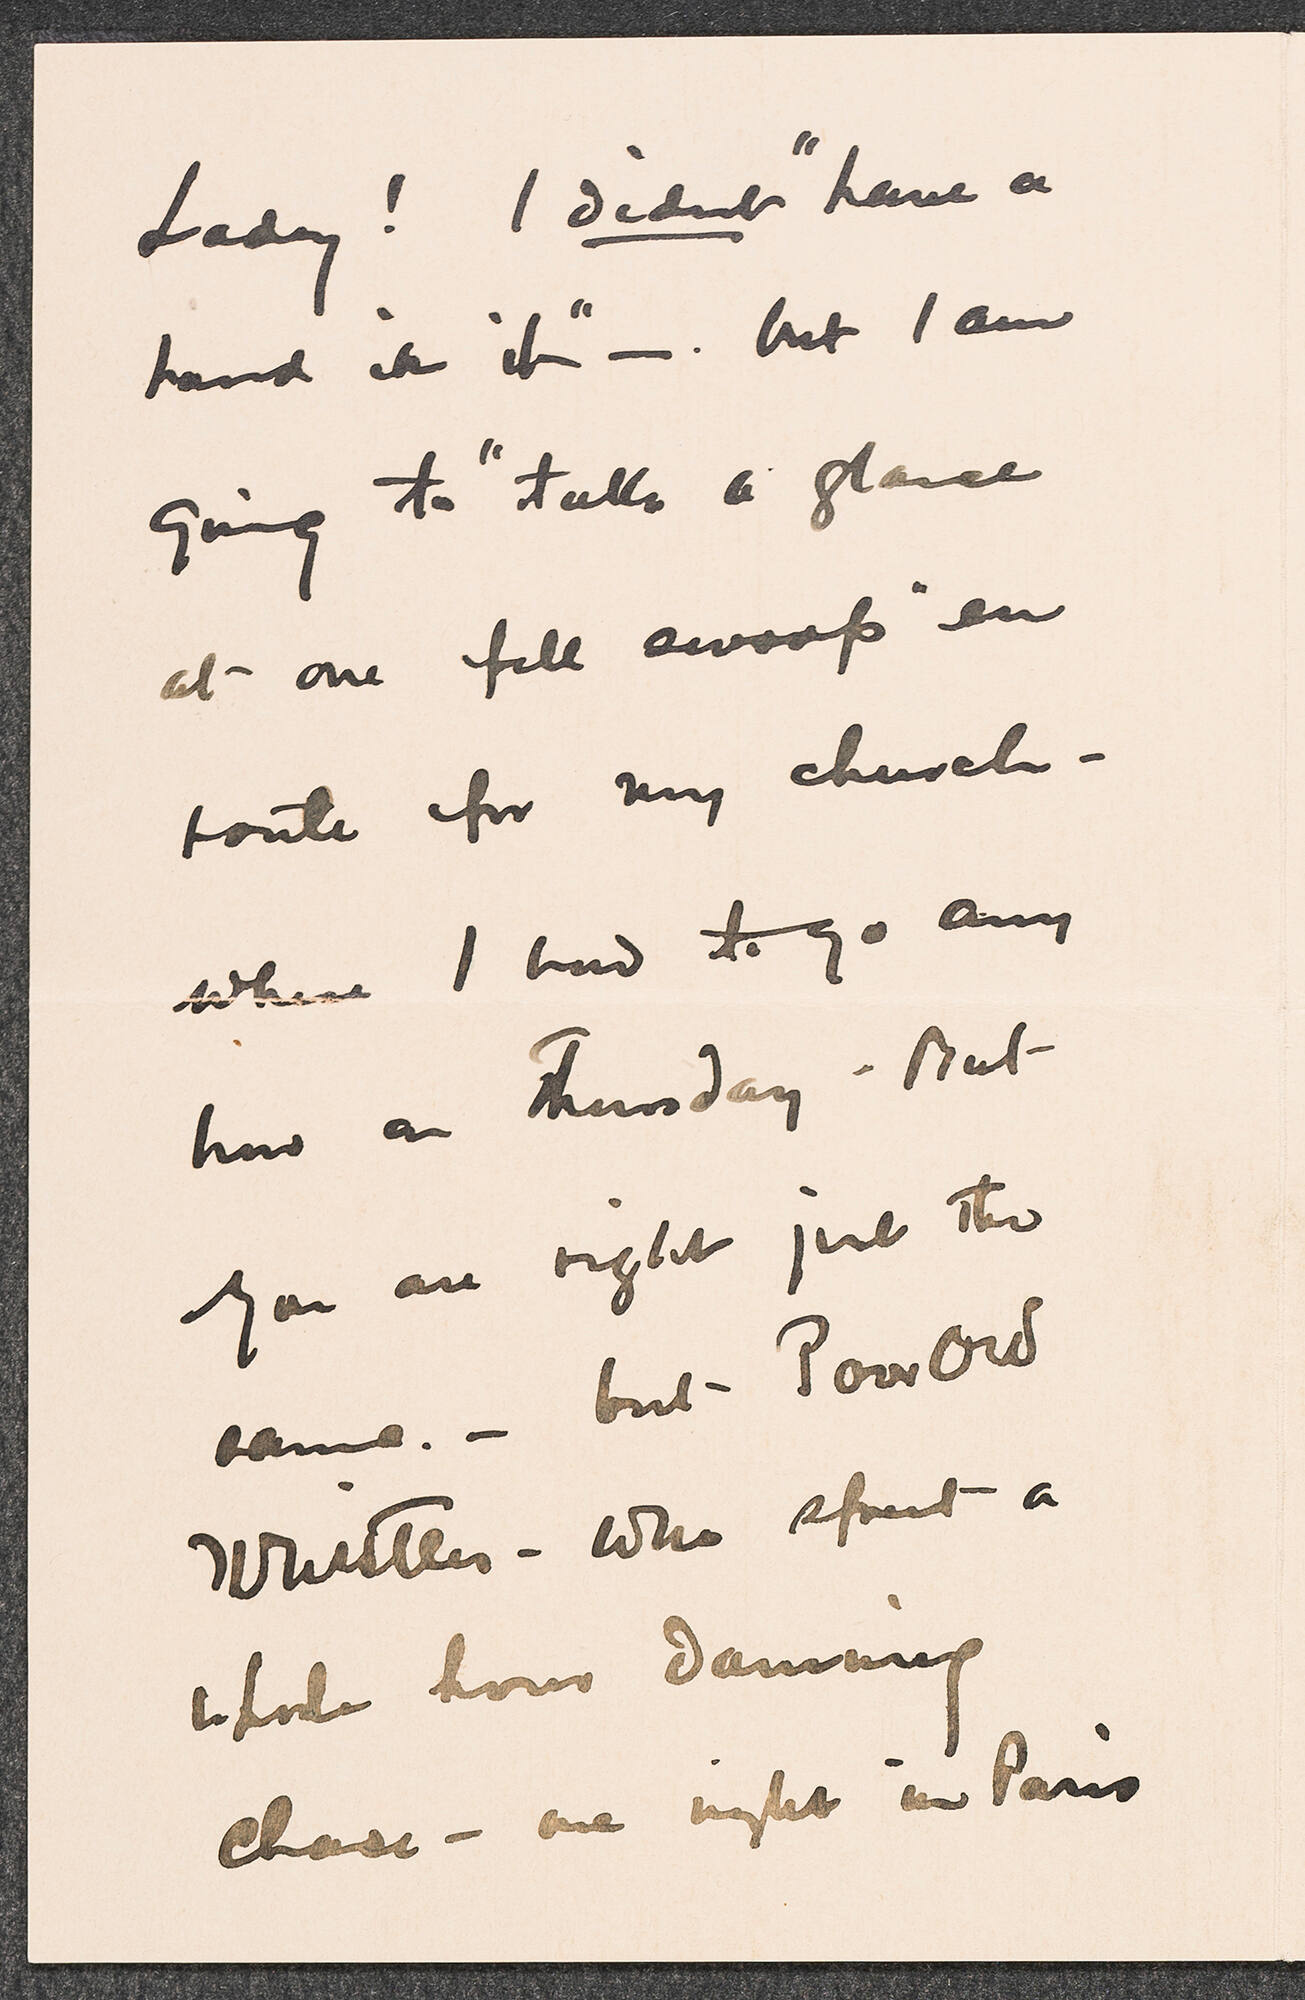 Lady! I didnt "have a
hand in it" —. but I am
going to "take a glance
at one fell swoop" en
route for my church -
where I had to go any
how on Thursday - But
you are right just the
same. - but Poor Old
Whistler - who spent a
whole hour damning
Chase - one night in Paris